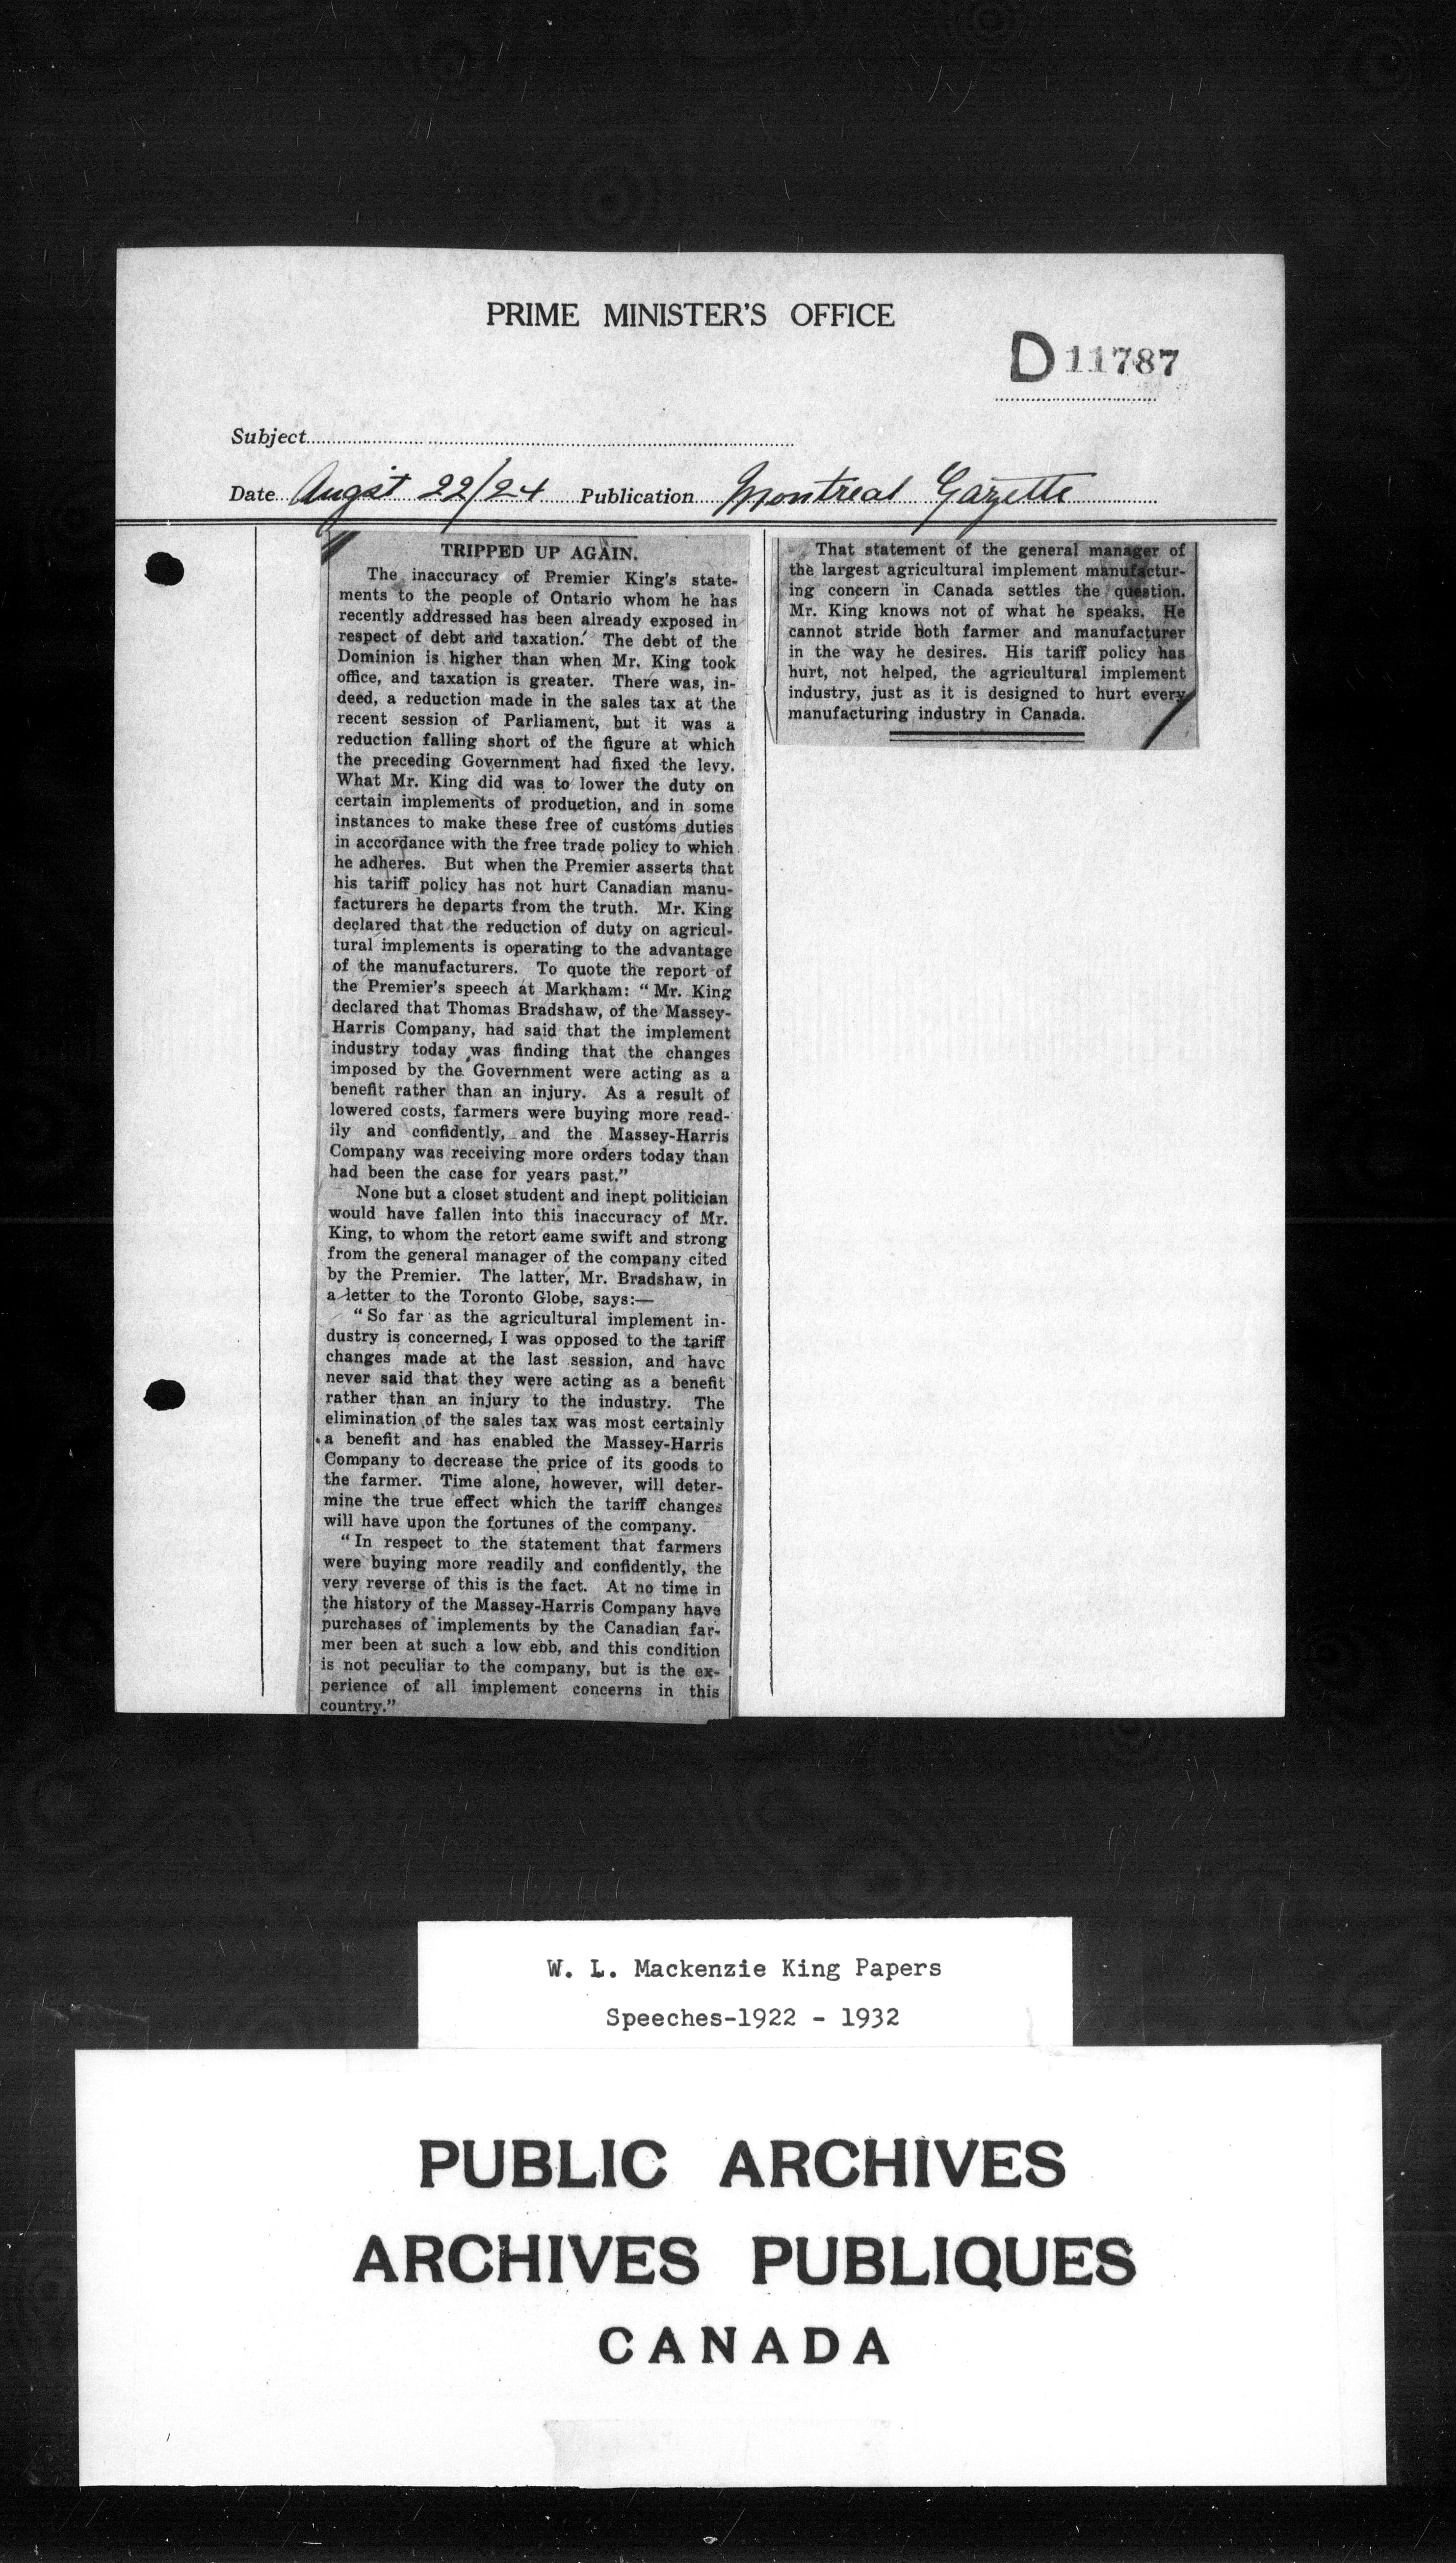 PRIME MINISTER'S OFFICE
D 11787
Subject
Date Augst 22/24 Publication Montreal Gazette
TRIPPED UP AGAIN.
The inaccuracy of Premier King's state-
ments to the people of Ontario whom he has
recently addressed has been already exposed in
respect of debt and taxation. The debt of the
Dominion is higher than when Mr. King took
office, and taxation is greater. There was, in-
deed, a reduction made in the sales tax at the
recent session of Parliament, but it was a
reduction falling short of the figure at which
the preceding Government had fixed the levy.
What Mr. King did was to lower the duty on
certain implements of production, and in some
instances to make these free of customs duties
in accordance with the free trade policy to which
he adheres. But when the Premier asserts that
his tariff policy has not hurt Canadian manu-
facturers he departs from the truth. Mr. King
declared that the reduction of duty on agricul-
tural implements is operating to the advantage
of the manufacturers. To quote the report of
the Premier's speech at Markham: "Mr. King
declared that Thomas Bradshaw, of the Massey-
Harris Company, had said that the implement
industry today was finding that the changes
imposed by the Government were acting as a
benefit rather than an injury. As a result of
lowered costs, farmers were buying more read-
ily and confidently, and the Massey-Harris
Company was receiving more orders today than
had been the case for years past."
None but a closet student and inept politician
would have fallen into this inaccuracy of Mr.
King, to whom the retort came swift and strong
from the general manager of the company cited
by the Premier. The latter, Mr. Bradshaw, in
a letter to the Toronto Globe, says:—
"So far as the agricultural implement in-
dustry is concerned, I was opposed to the tariff
changes made at the last session, and have
never said that they were acting as a benefit
rather than an injury to the industry. The
elimination of the sales tax was most certainly
a benefit and has enabled the Massey-Harris
Company to decrease the price of its goods to
the farmer. Time alone, however, will deter-
mine the true effect which the tariff changes
will have upon the fortunes of the company.
"In respect to the statement that farmers
were buying more readily and confidently, the
very reverse of this is the fact. At no time in
the history of the Massey-Harris Company have
purchases of implements by the Canadian far-
mer been at such a low ebb, and this condition
is not peculiar to the company, but is the ex-
perience of all implement concerns in this
country."
That statement of the general manager of
the largest agricultural implement manufactur-
ing concern in Canada settles the question.
Mr. King knows not of what he speaks. He
cannot stride both farmer and manufacturer
in the way he desires. His tariff policy has
hurt, not helped, the agricultural implement
industry, just as it is designed to hurt every
manufacturing industry in Canada.
W. L. Mackenzie King Papers
Speeches-1922 - 1932
PUBLIC ARCHIVES
ARCHIVES PUBLIQUES
CANADA